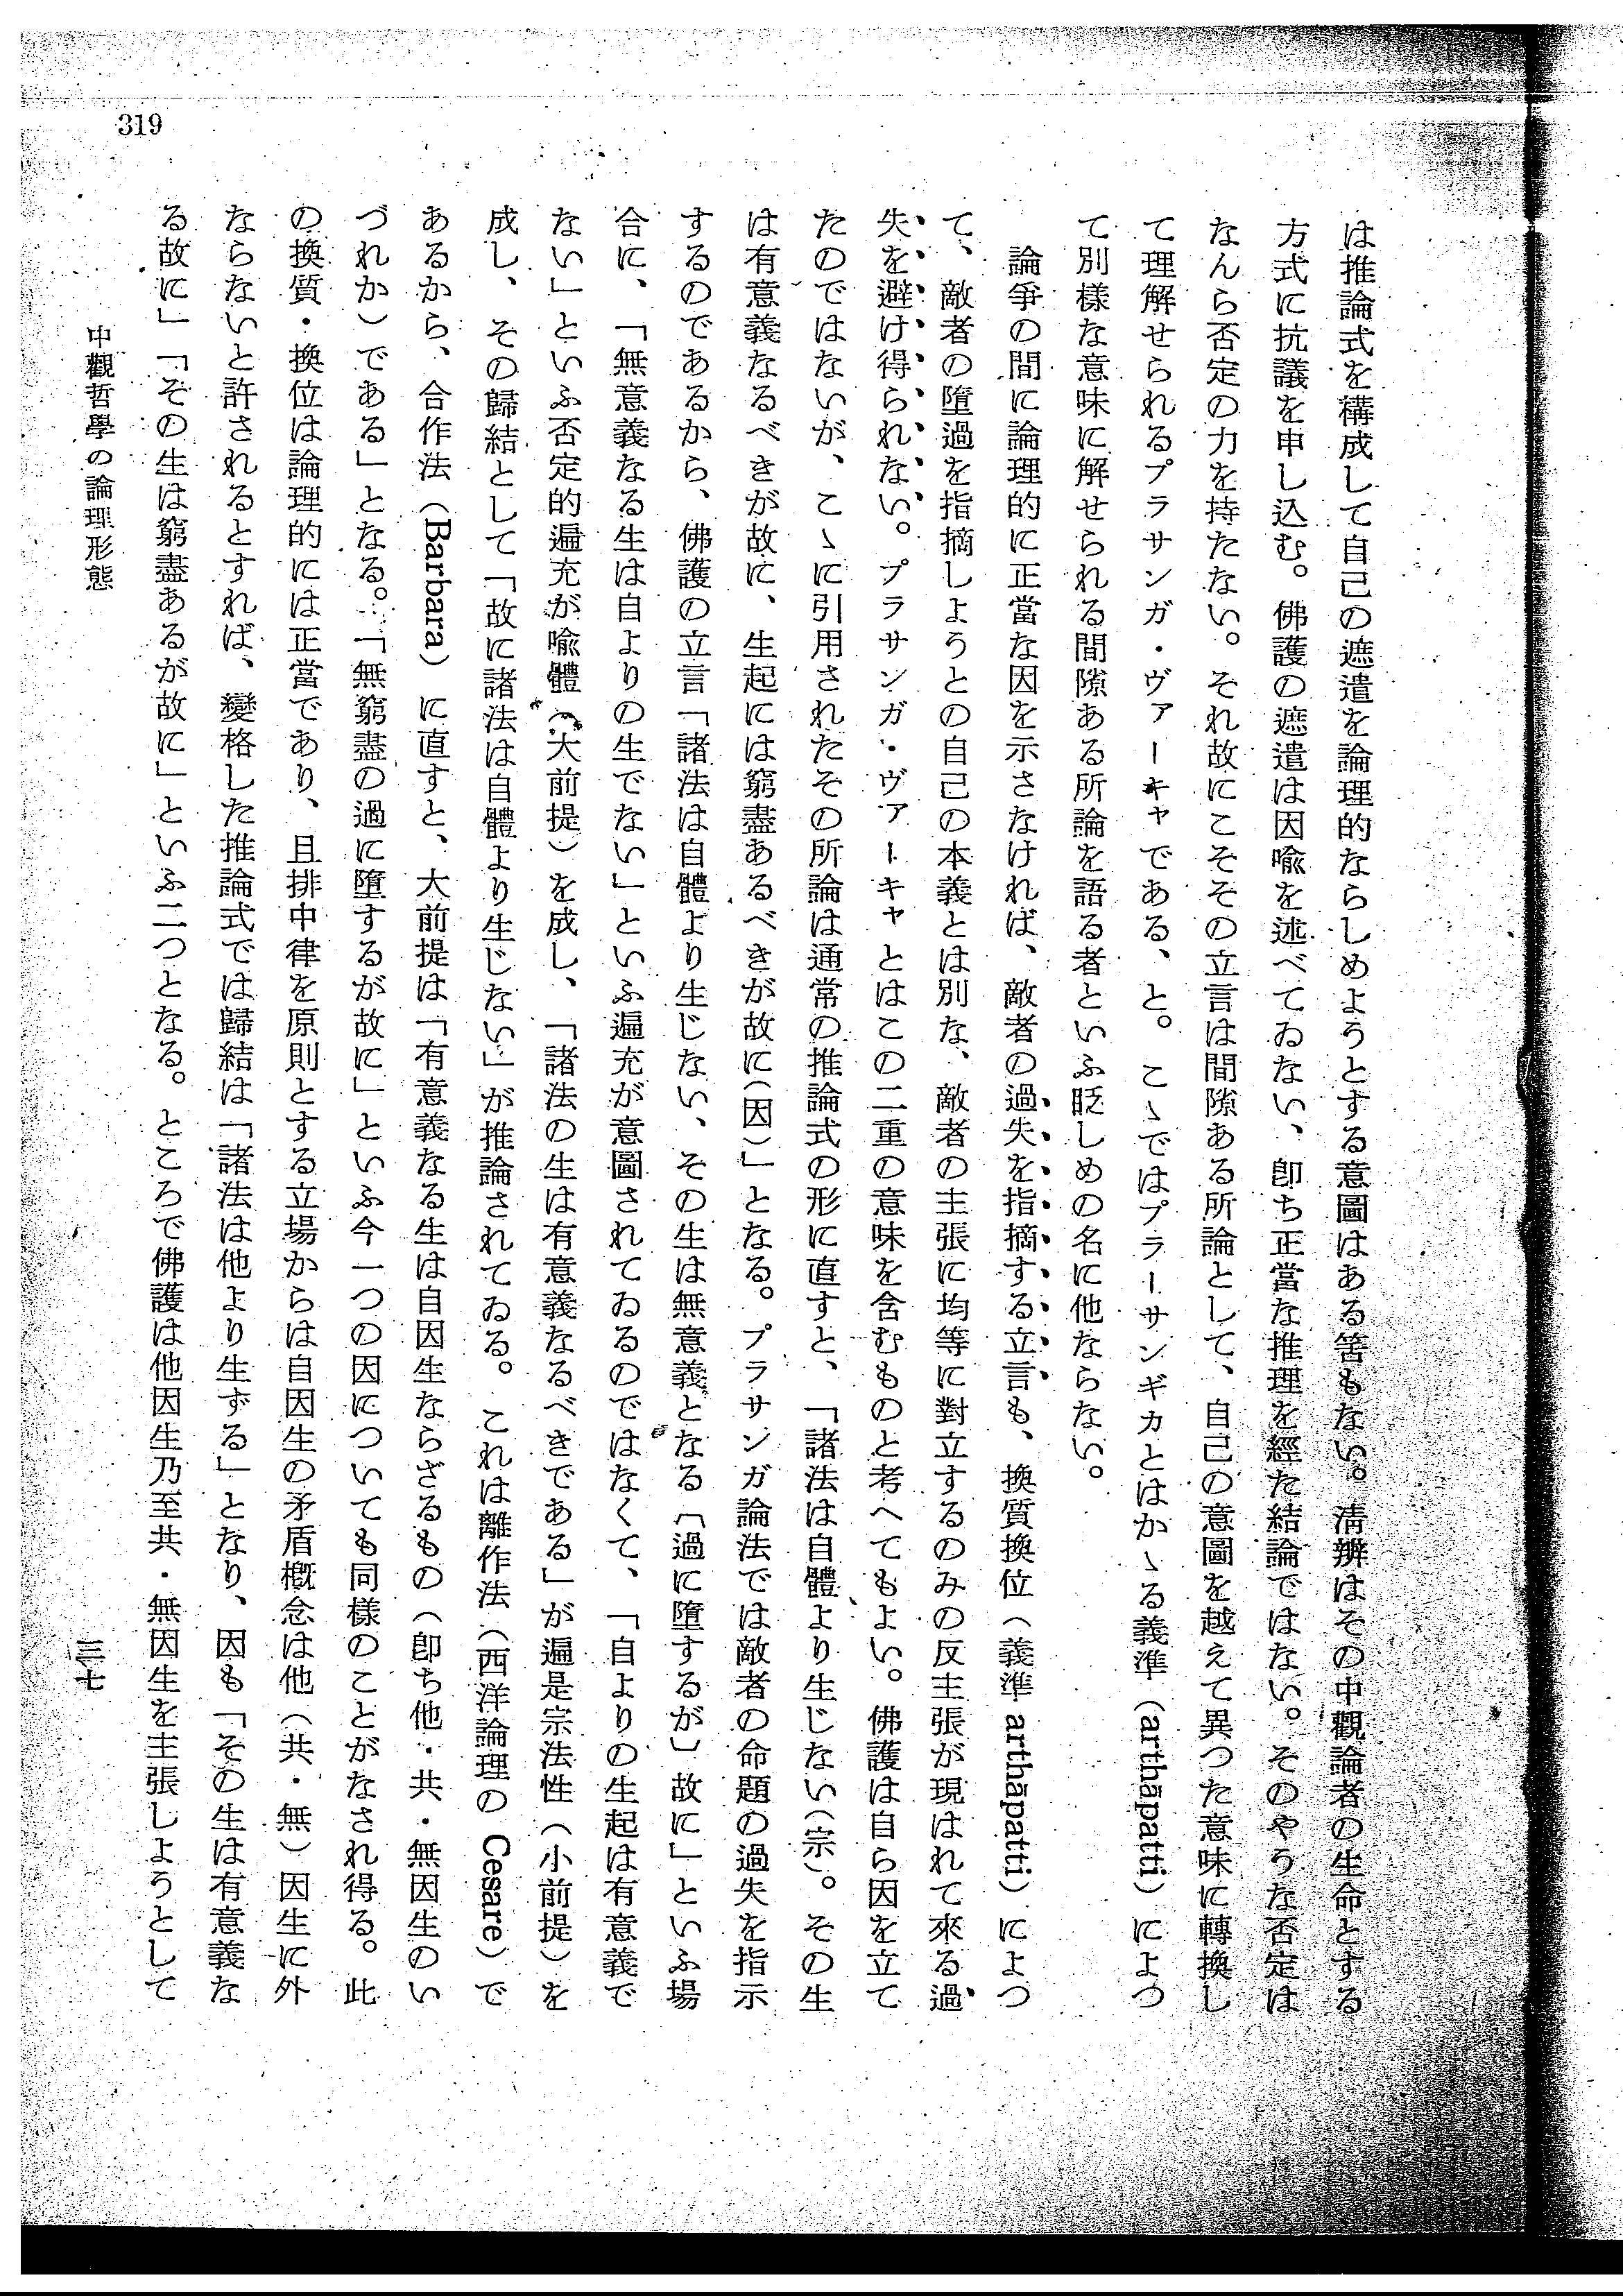 319
は推論式を構成して自己の遮遣を論理的ならしめようとする意圖はある筈もない。淸辨はその中觀論者の生命とする
方式に抗議を申し込む。佛護の遮遣は因喩を述べてゐない、卽ち正當な推理を經た結論ではない。そのやうな否定は
なんら否定の力を持たない。それ故にこそその立言は間隙ある所論として、自己の意圖を越えて異つた意味に轉換し
て理解せられるプラサンガ・ヴァーキャである、と。こゝではプラーサンギカとはかゝる義準（arthāpatti）によつ
て別樣な意味に解せられる間隙ある所論を語る者といふ貶しめの名に他ならない。
論爭の間に論理的に正當な因を示さなければ、敵者の過失を指摘する立言も、換質換位（義準 arthāpatti）によつ
て、敵者の墮過を指摘しようとの自己の本義とは別な、敵者の主張に均等に對立するのみの反主張が現はれて來る過
失を避け得られない。プラサンガ・ヴァーキャとはこの二重の意味を含むものと考へてもよい。佛護は自ら因を立て
たのではないが、こゝに引用されたその所論は通常の推論式の形に直すと、「諸法は自體より生じない（宗）。その生
は有意義なるべきが故に、生起には窮盡あるべきが故に（因）」となる。プラサンガ論法では敵者の命題の過失を指示
するのであるから、佛護の立言「諸法は自體より生じない、その生は無意義となる〔過に墮するが〕故に」といふ場
合に、「無意義なる生は自よりの生でない」といふ遍充が意圖されてゐるのではなくて、「自よりの生起は有意義で
ない」といふ否定的遍充が喩體（大前提）を成し、「諸法の生は有意義なるべきである」が遍是宗法性（小前提）を
成し、その歸結として「故に諸法は自體より生じない」が推論されてゐる。これは離作法（西洋論理の Cesare）で
あるから、合作法（Barbara）に直すと、大前提は「有意義なる生は自因生ならざるもの（卽ち他・共・無因生のい
づれか）である」となる。「無窮盡の過に墮するが故に」といふ今一つの因についても同樣のことがなされ得る。此
の換質・換位は論理的には正當であり、且排中律を原則とする立場からは自因生の矛盾概念は他（共・無）因生に外
ならないと許されるとすれば、變格した推論式では歸結は「諸法は他より生ずる」となり、因も「その生は有意義な
る故に」「その生は窮盡あるが故に」といふ二つとなる。ところで佛護は他因生乃至共・無因生を主張しようとして
中觀哲學の論理形態
三七